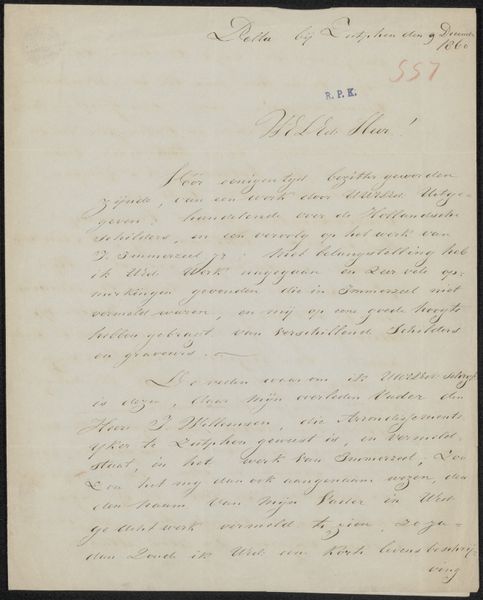 bij Zutphen den 9 December
1860
557
R. P. K.
WelEd. Heer!
Vóór eenigen tijd bezitter geworden
zijnde, van een werk door UwEd. Uitge-
geven: handelende over de Hollandsche
Schilders, en een vervolg op het werk van
J. Immerzeel jr: Met belangstelling heb
ik Uwd. Werk nagegaan en zeer vele op-
merkingen gevonden die in Immerzeel niet
vermeld waren, en mij op eene goede hoogte
hebben gebragt van verschillende Schilders
en graveurs. —
De reden waarom ik UwEd. schrijf
is deze, daar mijn overleden Vader den
Heer J. Willemsen, die Arrondissements
yker te Zutphen geweest is, en vermeld
staat, in het werk van Immerzeel, Zoo
Zou het mij dan ook aangenaam wezen, dat
den naam van mijn Vader in Uwd.
gedacht werk vermeld te zien, zoo ja-
dan Zoude ik Uwd een korte levensbeschrij-
ving